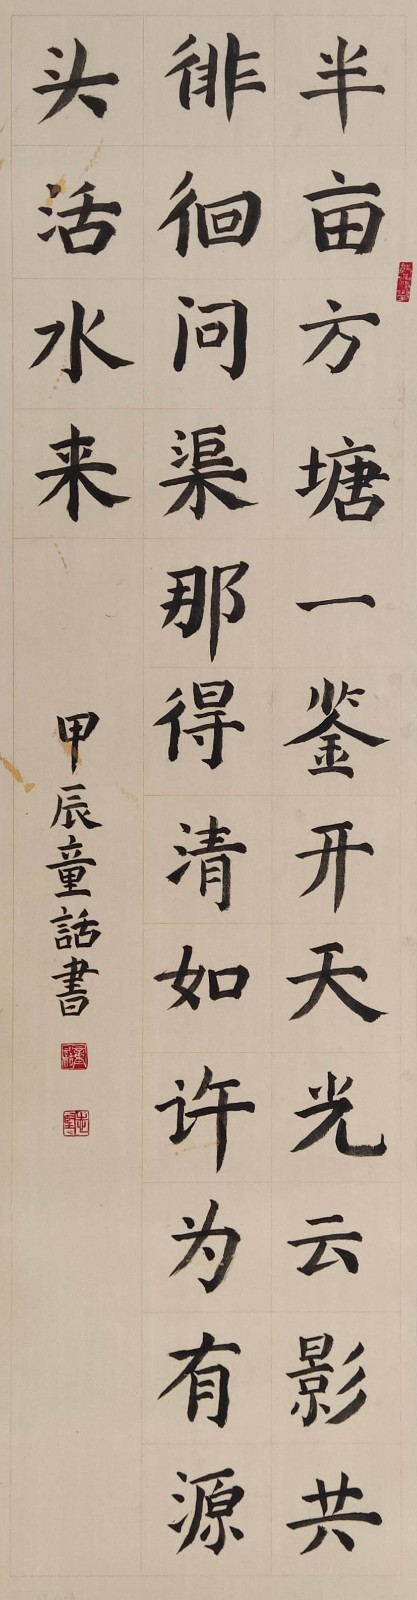 半亩方塘一鉴开天光云影共
徘徊问渠那得清如许为有源
头活水来
甲辰童話書